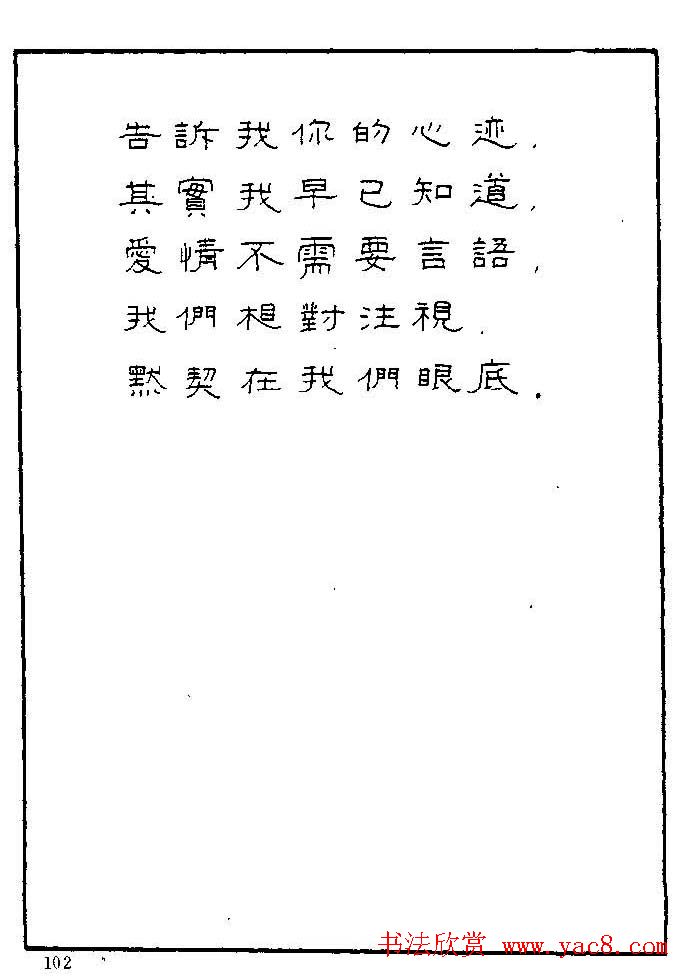 告訴我你的心迹，
其實我早已知道，
愛情不需要言語，
我們相對注視．
默契在我們眼底．
102
书法欣赏 www.yac8.com